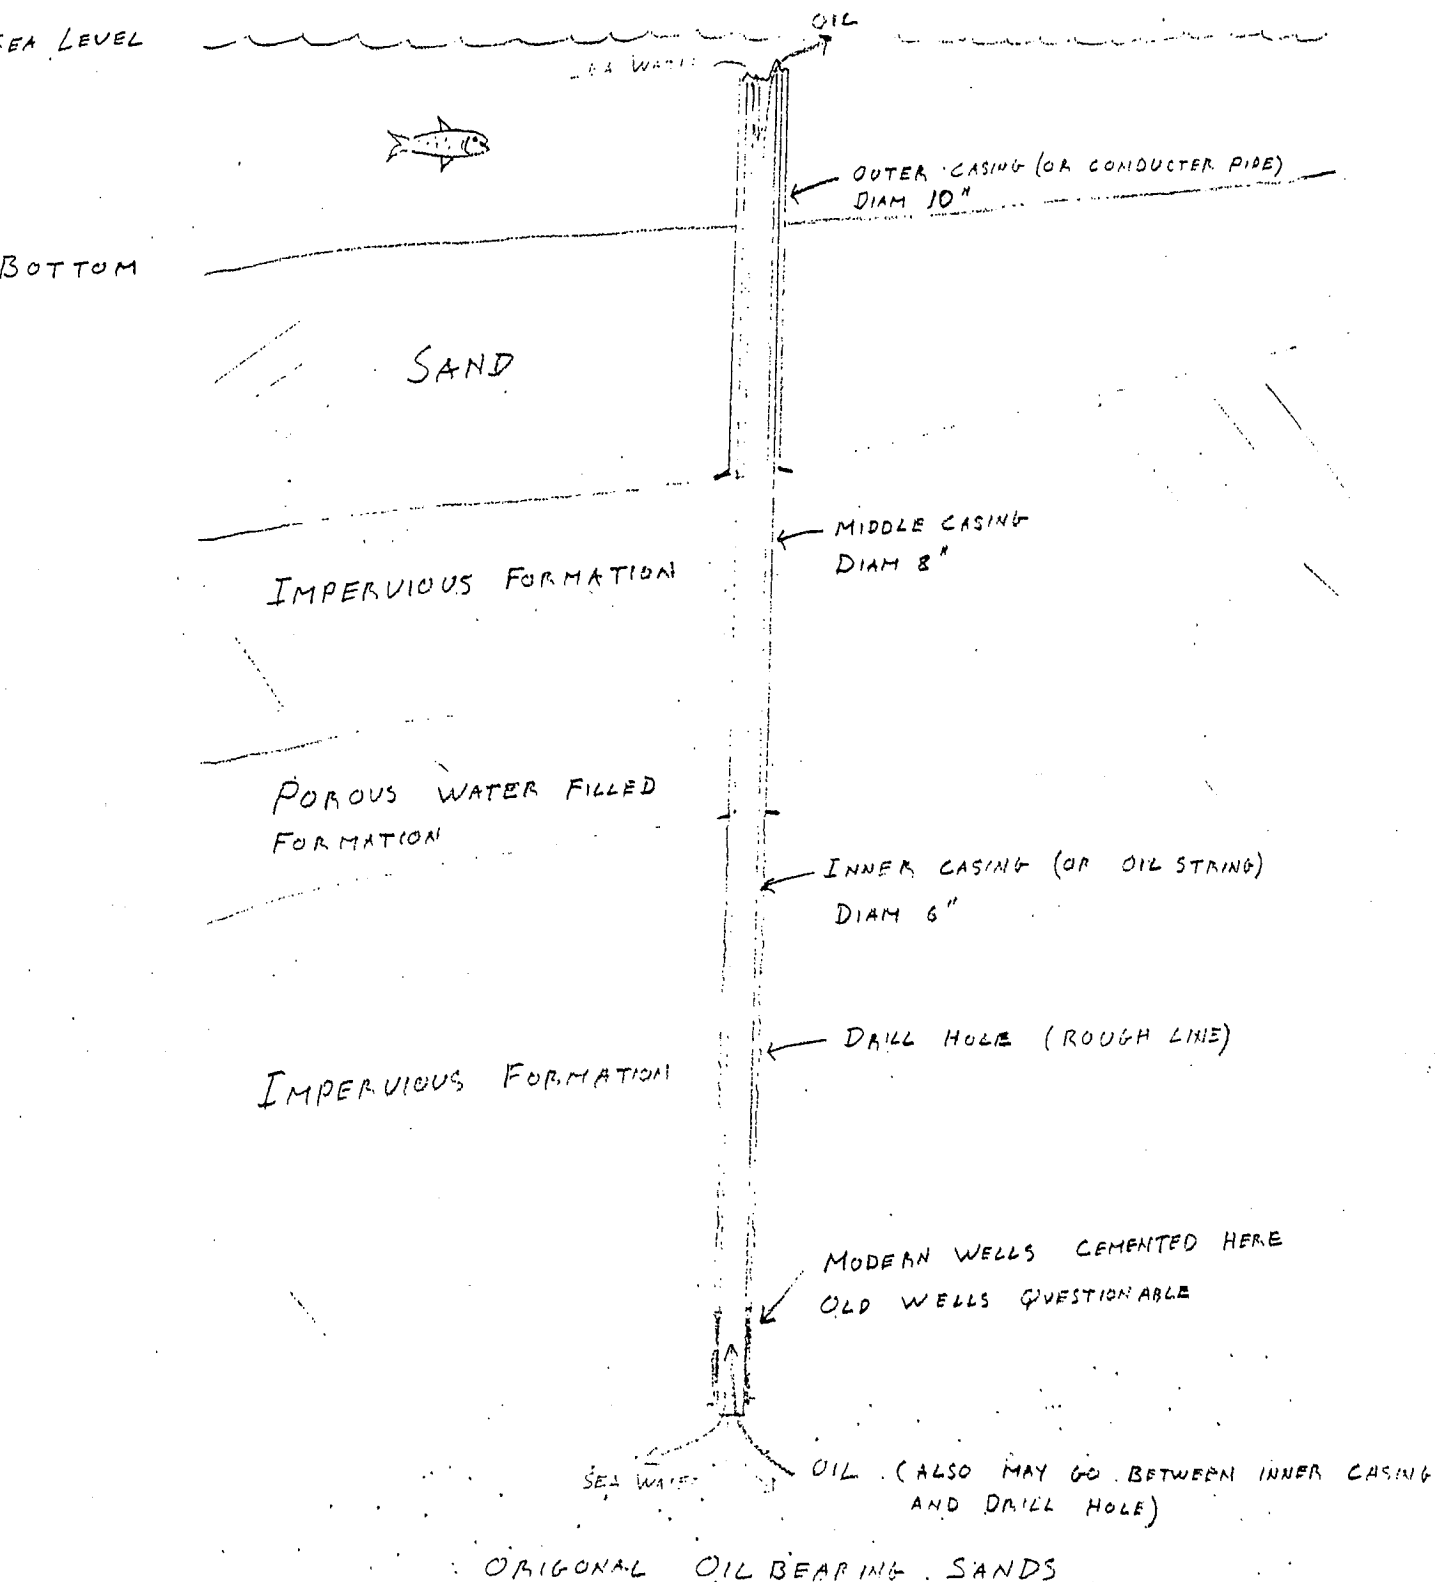 SEA LEVEL
OIL
SEA WATER
OUTER CASING (OR CONDUCTER PIPE)
DIAM 10"
BOTTOM
SAND
MIDDLE CASING
DIAM 8"
IMPERVIOUS FORMATION
POROUS WATER FILLED
FORMATION
INNER CASING (OR OIL STRING)
DIAM 6"
DRILL HOLE (ROUGH LINE)
IMPERVIOUS FORMATION
MODERN WELLS CEMENTED HERE
OLD WELLS QUESTIONABLE
SEA WATER
OIL (ALSO MAY GO BETWEEN INNER CASING
AND DRILL HOLE)
ORIGONAL OIL BEARING SANDS